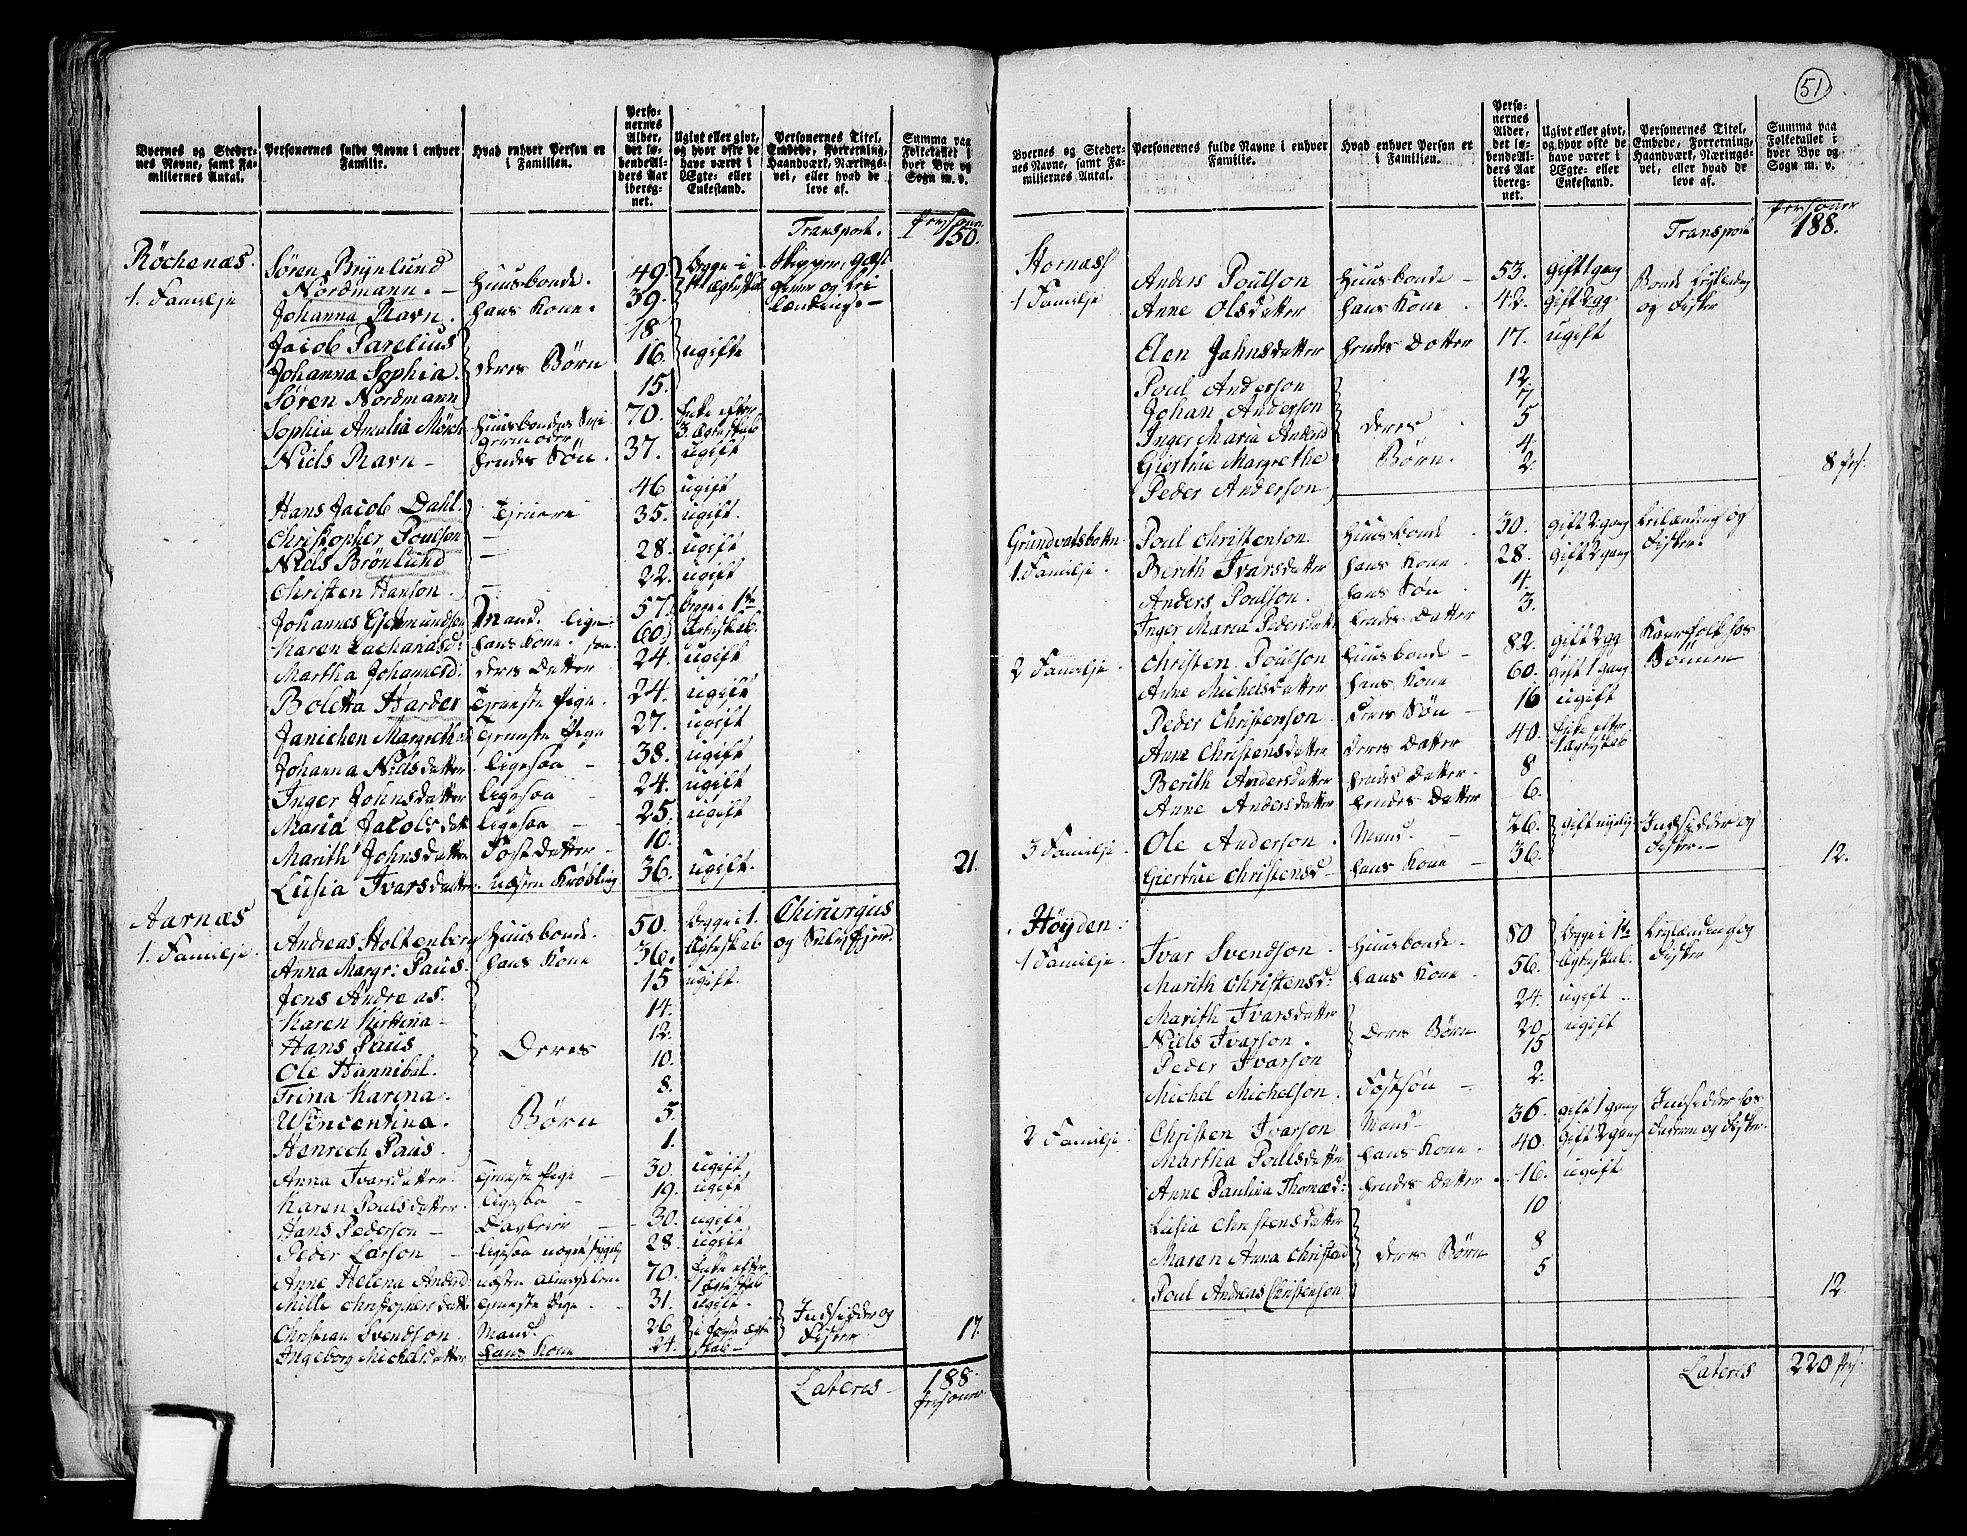 51
Byernes og Stedernes Navne, samt Familiernes Antal.
Personernes fulde Navne i enhver Familie.
Hvad enhver Person er i Familien.
Personernes Alder, det løbende Alders Aar iberegnet.
Ugivt eller givt, og hvor ofte de have været i Ægte- eller Enkestand.
Personernes Titel, Embede, Forretning, Haandværk, Næringsvei, eller hvad de leve af.
Summa paa Folketallet i hver Bye og Sogn m. v.
Transport. Personer 150.
Röchenæs. Sören Brynlund Nordmann. Huusbonde. 49. begge i 1te Ægteskab Skipper, giæstgiver og Leilænding
1. Familje Johanna Ravn. hans Kone. 39.
Jacob Parelius 18.
Johanna Sophia. deres Børn 16. ugifte
Sören Nordmann 15.
Sophia Amalia Mörch Huusbondens Svigermoder 70. Enke efter 3. Ægteskab
Niels Ravn - hendes Søn. 37. ugift
Hans Jacob Dahl. Tjenere 46 ugift
Christopher Poulson - 35. ugift.
Niels Brönlund - 28. ugift
Christen Hanson. - 22. ugift
Johannes Esdmundsen Mand. 57. begge i 1te Egteskab.
Karen Zachariasd: hans Kone. 60.
Martha Johannesd. deres Datter 24. ugift
Boletta Harder Tjeneste Pige. 24. ugift
Janichen Margreth Tjeneste Pige 27. ugift
Johanna Nielsdatter ligesaa - 38. ugift
Inger Johnsdatter ligesaa - 24. ugift
Maria Jacobsdatt ligesaa - 25. ugift
Marith Johnsdatter Fostdatter - 10.
Lusia Ivarsdatter. næsten Krøbling 36. ugift. 21.
Aarnæs Andreas Holtenberg Huusbonde. 50. begge i 1. Egteskab Chirurgus
1. Familje. Anna Margr: Paus. hans Kone 36.
Jens Andreas. 15 ugift.
Karen Kirstina - 14.
Hans Paus 12.
Ole Hannibal. Deres 10.
Trina Karina. 8.
Wincentina. Børn 5
Henrich Paus. 1.
Anna Ivarsdatter. Tjeneste Pige - 30. ugift
Karen Poulsdatter. ligesaa - 19. ugift
Hans Pederson - Dagleier - 30. ugift
Peder Larson - ligesaa noget sygelig 28. ugift
Anne Helena Andersd næsten almisselem 70. Enke efter 1 Egteskab
Mille Christophersdatt Tjeneste Pige - 31. ugift.
Christian Svendson. Mand. 26 i første ægteskab - Indsidder og Fisker. 17.
Ingeborg Michelsdatter hans Kone 24.
Lateres 188. Personer
Byernes og Stedernes Navne, samt Familiernes Antal.
Personernes fulde Navne i enhver Familie.
Hvad enhver Person er i Familien.
Personernes Alder, det løbende Alders Aar iberegnet.
Ugivt eller givt, og hvor ofte de have været i Ægte- eller Enkestand.
Personernes Titel, Embede, Forretning, Haandværk, Næringsvei, eller hvad de leve af.
Summa paa Folketallet i hver Bye og Sogn m. v.
Transport Personer 188.
Stornæss Anders Poulson Huusbonde - 53. gift 1 gang Bonde Leylending og Fisker
1 Familje Anne Olsdatter hans Kone. 42. gift 2 gg
Elen Jahnsdatter hendes Datter 17. ugift
Poul Anderson 12.
Johan Anderson 7
Inger Maria Andersd deres 5
Giertrue Margrethe Børn. 4
Peder Anderson 2. 8 Prs:
Grundvatsbottn. Poul Christenson Huusbonde. 30. gift 2. gang Leilænding og Fisker.
1. Familje. Berith Ivarsdatter hans Kone. 28. gift 2 gang
Anders Poulson. hans Søn 4.
Inger Maria Pedersdatt hendes Datter 3.
2 Familje. Christen. Poulson Huusbonde - 82. gift 2 gg Kaarfolk hos Sønnen
Anne Michelsdatter hans Kone 60. gift 1 gang
Peder Christenson. deres Søn - 16 ugift
Anne Christensdatter deres Datter 40. Enke efter 1 ægteskab
Berith Andersdatter hendes Datter. 8
Anne Andersdatter hendes Datter 6.
3 Familje. Ole Anderson. Mand - 26. gift nyelig Indsidder og Fisker. -
Giertrue Christensd - hans Kone - 36. 12.
Höyden. Ivar Svendson. Huusbonde. 80 begge i 1te Egteskab. Leylænding og Fisker
1 Familje. Marith Christensd: hans Kone. 56.
Marith Ivarsdatter 24. ugift
Niels Ivarson. deres Børn 20. ugift
Peder Ivarson 15
Michel Michelson. Fostsøn - 2.
2 Familje. Christen Ivarson Mand - 36. gift 1 gang Indsidder hos Faderen og Fisker.
Martha Poulsdatter hans Kone. 40. gift 2 gang
Anne Paulina Thomæsd: hendes Datter. 16. ugift
Lusia Christensdatter 10
Maren Anna Christensd deres Børn 8
Poul Andreas Christenson 5 12
Lateres 220 Prs.